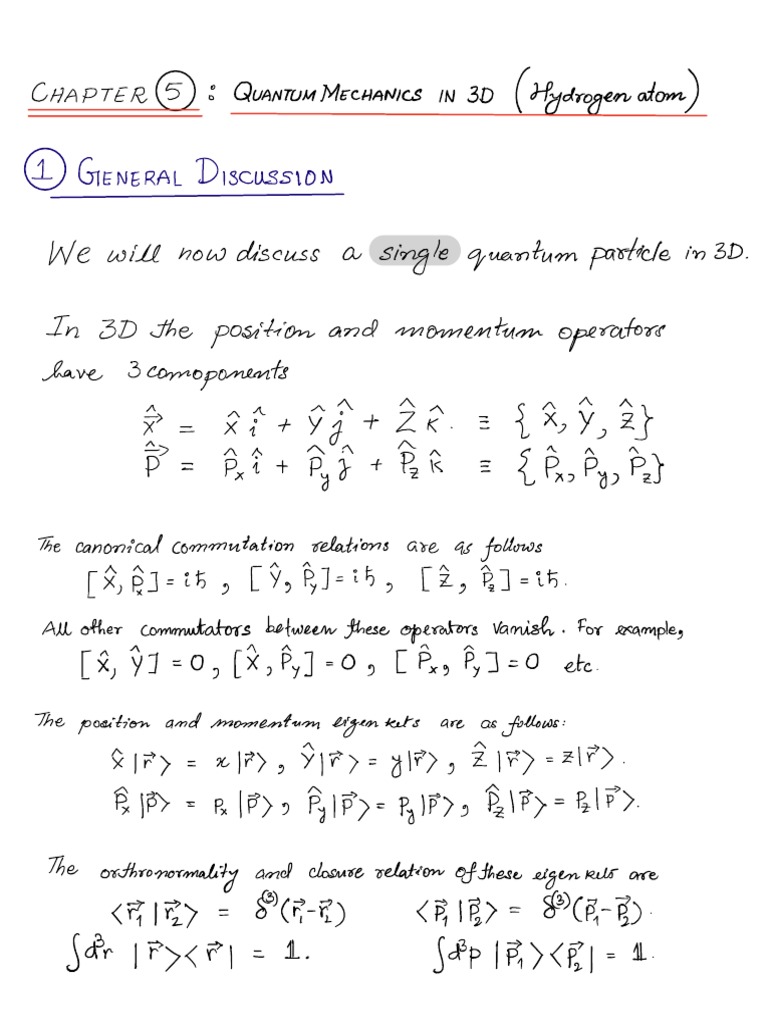 CHAPTER 5 : QUANTUM MECHANICS IN 3D (Hydrogen atom)
1 GENERAL DISCUSSION
We will now discuss a single quantum particle in 3D.
In 3D the position and momentum operators
have 3 comoponents
$\hat{\vec{x}} = \hat{x}\hat{i} + \hat{y}\hat{j} + \hat{z}\hat{k}. \equiv \{\hat{x}, \hat{y}, \hat{z}\}$
$\hat{\vec{P}} = \hat{P}_x\hat{i} + \hat{P}_y\hat{j} + \hat{P}_z\hat{k} \equiv \{\hat{P}_x, \hat{P}_y, \hat{P}_z\}$
The canonical commutation relations are as follows
$[\hat{x}, \hat{p}_x] = i\hbar, [\hat{y}, \hat{P}_y] = i\hbar, [\hat{z}, \hat{P}_z] = i\hbar.$
All other commutators between these operators vanish. For example,
$[\hat{x}, \hat{y}] = 0, [\hat{x}, \hat{P}_y] = 0, [\hat{P}_x, \hat{P}_y] = 0$ etc.
The position and momentum eigen kets are as follows:
$\hat{x}|\vec{r}\rangle = x|\vec{r}\rangle, \hat{y}|\vec{r}\rangle = y|\vec{r}\rangle, \hat{z}|\vec{r}\rangle = z|\vec{r}\rangle.$
$\hat{P}_x|\vec{p}\rangle = p_x|\vec{p}\rangle, \hat{P}_y|\vec{p}\rangle = p_y|\vec{p}\rangle, \hat{P}_z|\vec{p}\rangle = p_z|\vec{p}\rangle.$
The orthronormality and closure relation of these eigen kets are
$\langle\vec{r}_1|\vec{r}_2\rangle = \delta^{(3)}(\vec{r}_1-\vec{r}_2)$ $\langle\vec{p}_1|\vec{p}_2\rangle = \delta^{(3)}(\vec{p}_1-\vec{p}_2).$
$\int d^3r |\vec{r}\rangle\langle\vec{r}| = 1.$ $\int d^3p |\vec{p}_1\rangle\langle\vec{p}_2| = 1.$